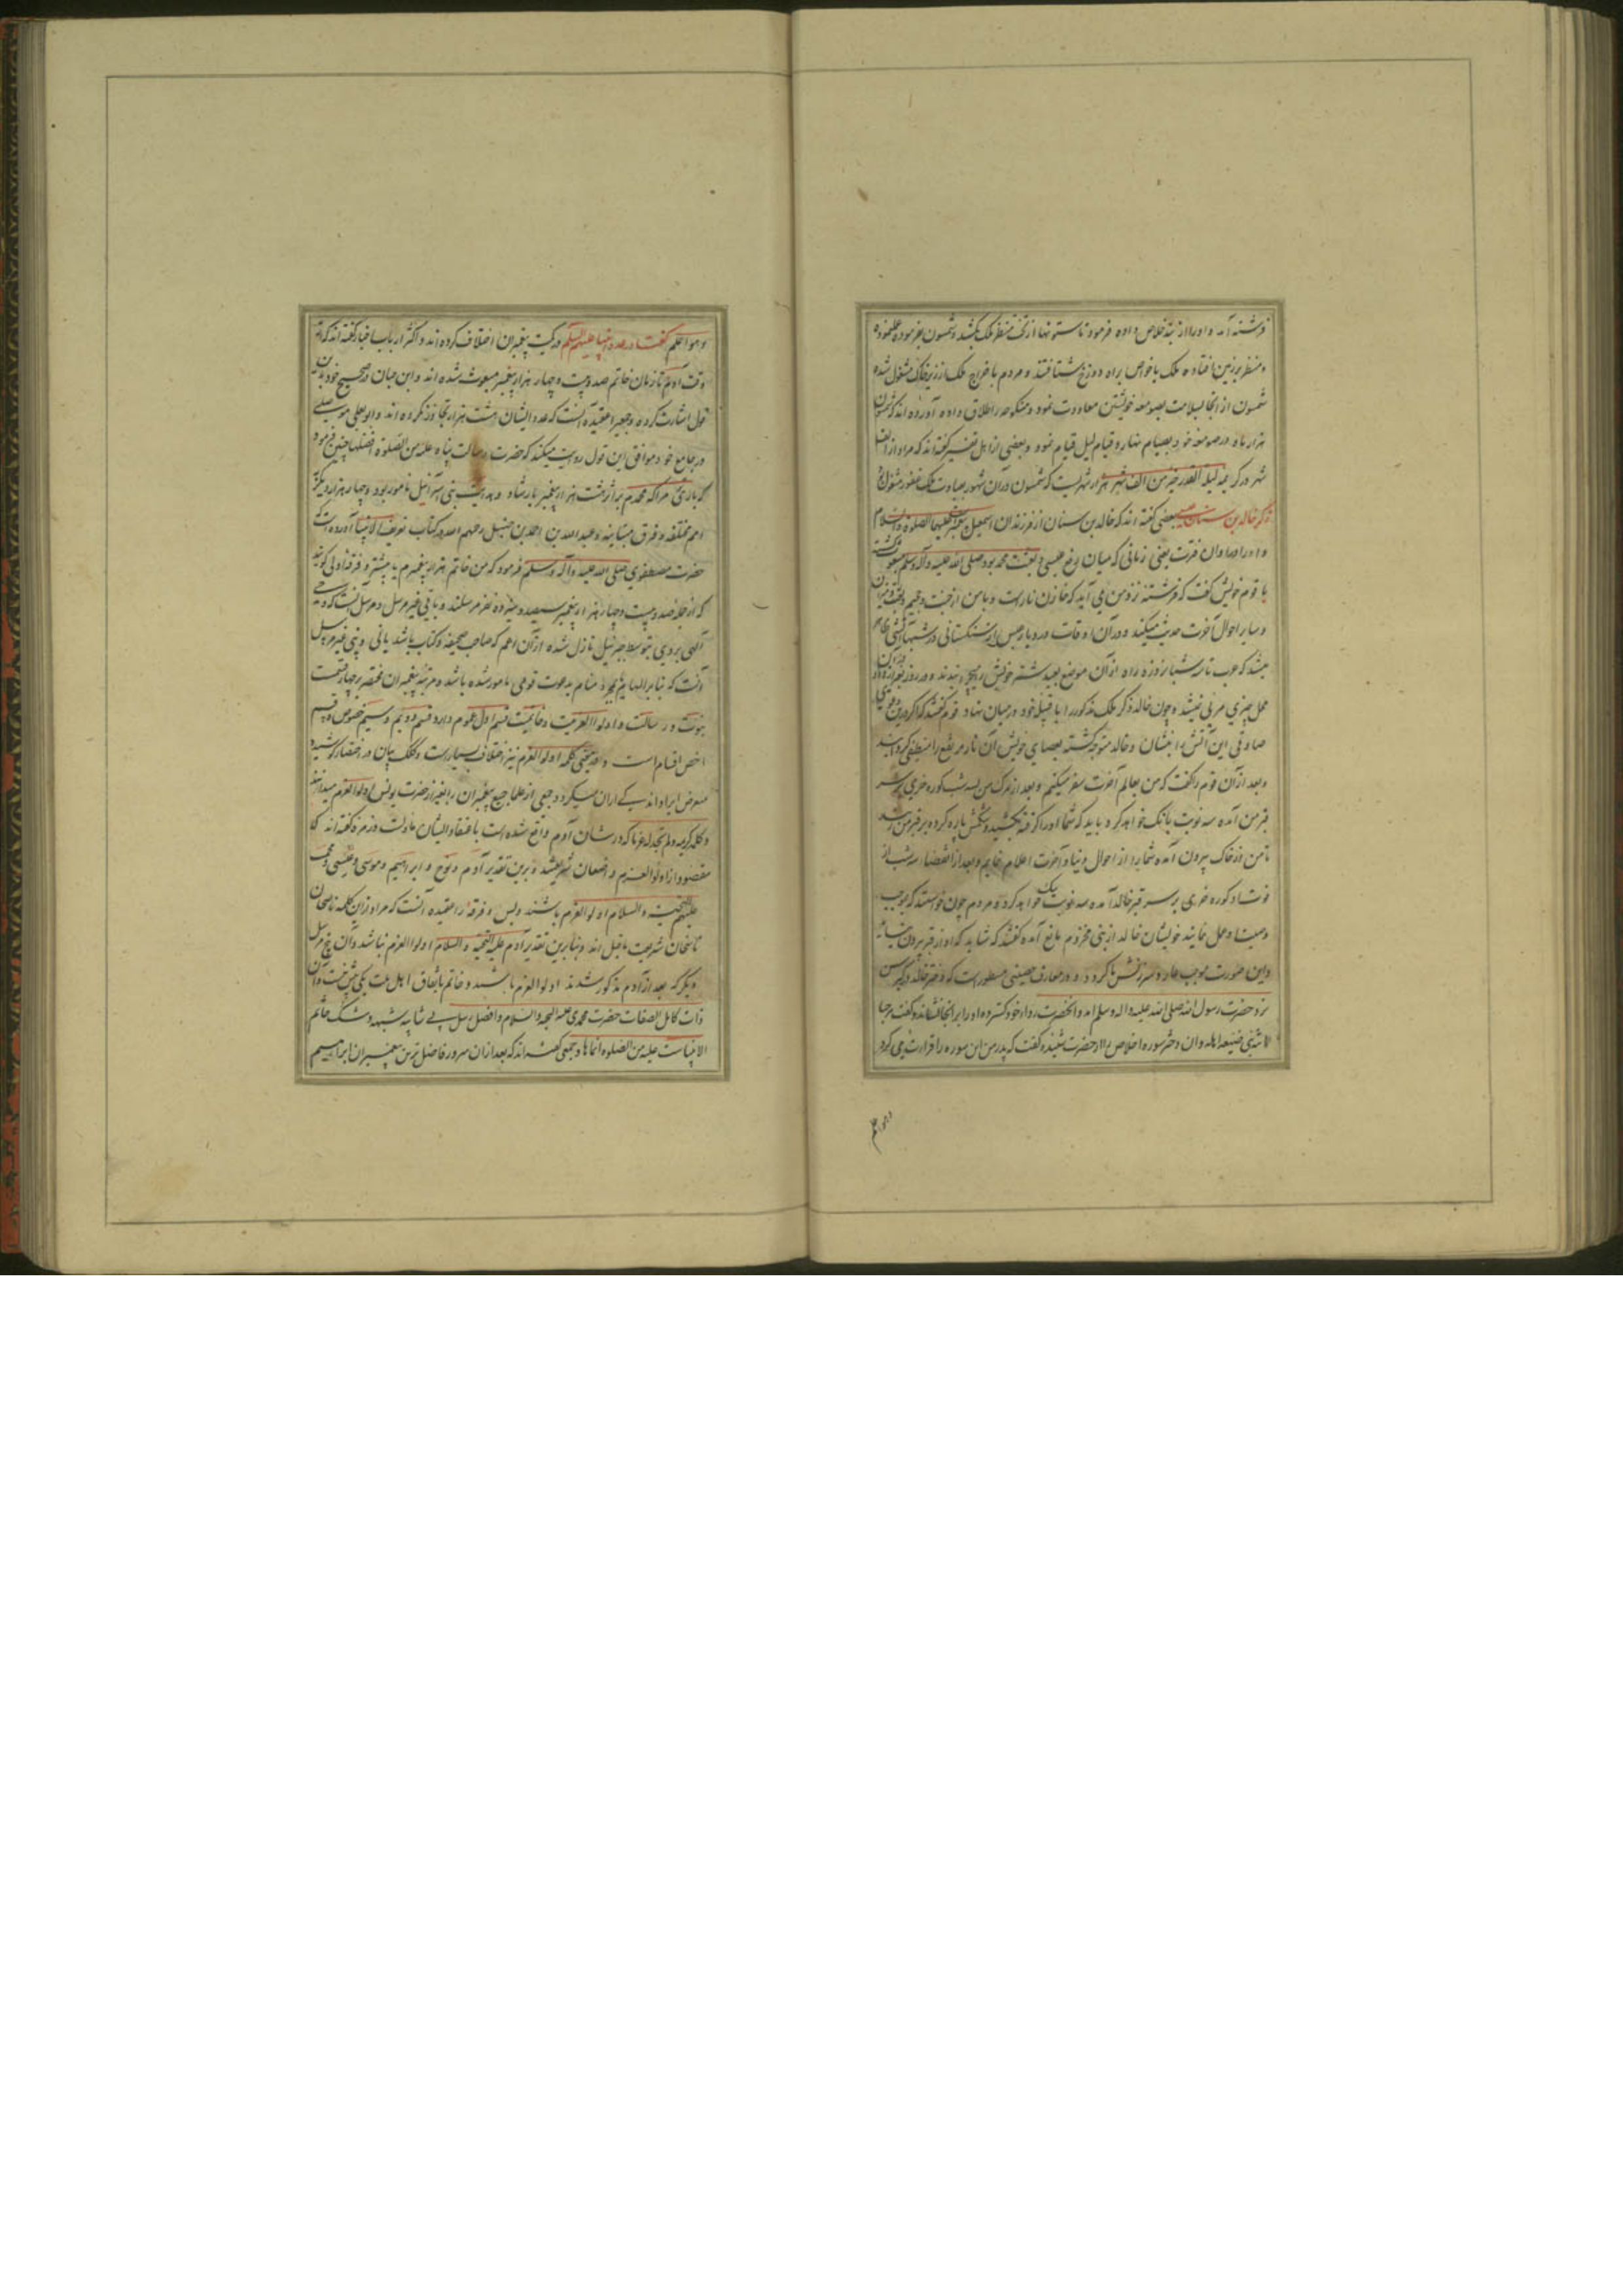 فرشته آمده او را از بند خلاص داده فرمود تا ستونها از تحت منظر ملک بکشد و شمسون بفرموده عمل نموده
و منظر بر زمین افتاده ملک با خواص براه دوزخ شتافتند و مردم باخراج ملک از زیر خاک مشغول شده
شمسون از آنجا بسلامت بصومعه خویشتن معاودت نمود و منکوحه را طلاق داده آورده اند که شمسون
هزار ماه در صومعه خود بصیام نهار و قیام لیل قیام نمود و بعضی از اهل تفسیر گفته اند که مراد از الف
شهر در کریمه لیلة القدر خیر من الف شهر هزار شهریست که شمسون در آن شهور بعبادت ملک غفور مشغول
ذکر خالد بن سنان عبسی بعضی گفته اند که خالد بن سنان از فرزندان اسمعیل پیغمبر علیهما الصلوة والسلام
و او را در اوان فترت یعنی زمانی که میان رفع عیسی و بعثت محمد بود صلی الله علیه وآله وسلم مبعوث گشته
با قوم خویش گفت که فرشته نزد من می آید که خازن نار است و با من از جنت و جحیم و بعث و میزان
و سایر احوال آخرت حدیث میکند و در آن اوقات در دیار عبس از سنگستانی در شبها آتشی ظاهر
میشد که عرب تا سه شبانروزه راه از آن موضع بعید شتر خویش را میدیدند و در روز بغیر از دود
محل چیزی مرئی نمیشد و چون خالد ذکر ملک مذکور را با قبیله خود در میان نهاد قوم گفتند که اگر درین دعوی
صادقی این آتش را بنشان و خالد متوجه گشته بعصای خویش آن نار مرتفع را منطفی گردانید
و بعد از آن قوم را گفت که من بعالم آخرت سفر میکنم و بعد از مرگ من بسه شب گوره خری بر سر
قبر من آمده سه نوبت بانگ خواهد کرد باید که شما او را گرفته بکشید و شکمش پاره کرده بر قبر من زنید
تا من از خاک بیرون آمده شما را از احوال دنیا و آخرت اعلام نمایم و بعد از انقضاء سه شب از
فوت او گوره خری بر سر قبر خالد آمده سه نوبت بانگ خواهد کرد و مردم چون خواستند که بموجب
وصیت او عمل نمایند خویشان خالد از بنی مخزوم مانع آمده گفتند که شاید که او از قبر بیرون نیاید
و این صورت موجب عار و سرزنش ما گردد و در معارف حصینی مسطور است که دختر خالد در کبر سن
نزد حضرت رسول الله صلی الله علیه واله وسلم امد و آنحضرت رداء خود گسترده او را بر آنجا نشاند و گفت مرحبا
لابنة نبی ضیعه اهله و ان دختر سوره اخلاص از حضرت شنیده گفت که پدر من این سوره را قراءت می کرد
وهو اعلم
وهو اعلم گفتار در عدد انبیا علیهم السلم در کمیت پیغمبران اختلاف کرده اند و اکثر ارباب اخبار گفته اند که از
وقت آدم تا زمان خاتم صد و بیست و چهار هزار پیغمبر مبعوث شده اند و ابن حبان در صحیح خود بدین
قول اشارت کرده و جمعی را عقیده آنست که عدد ایشان از هشت هزار تجاوز نکرده اند و ابو یعلی موصلی
در جامع خود موافق این قول روایت میکند که حضرت رسالت پناه علیه من الصلوة افضلها چنین فرمود
که باری مرا که محمدم بر اثر هشت هزار پیغمبر بارشاد و هدایت بنی اسرائیل مامور بود و چهار هزار دیگر
امم مختلفه و فرق متباینه و عبد الله بن احمد بن حنبل رحمهم الله در کتاب تعریف الانبیا آورده است
حضرت مصطفوی صلی الله علیه وآله وسلم فرمود که من خاتم هزار پیغمبرم یا بیشتر و فرقه اولی گویند
که از جمله صد و بیست و چهار هزار پیغمبر سیصد و سیزده نفر مرسلند و باقی غیر مرسل و مرسل آنست که وحی
آلهی بر وی بتوسط جبرئیل نازل شده از آن اعم که صاحب صحیفه و کتاب باشد یا نی و نبی غیر مرسل
آنست که بنابر الهام یا منام بدعوت قومی مامور شده باشد و مرتبه پیغمبران منحصر بر چهار قسمست
نبوت و رسالت و اولوا العزمیت و خاتمیت قسم اول عموم دارد و قسم دویم و سیم خصوص و قسم
اخص اقسام است و در معنی کلمه اولوا العزم نیز اختلاف بسیار است و کلک بیان در اختصار کوشیده
معرض ایراد اندکی از آن میگردد جمعی از علما جمیع پیغمبران را بغیر از حضرت یونس اولوا العزم میدانند
و کلمه کریمه ولم نجد له عزما که در شان آدم واقع شده است باعتقاد ایشان ماولست و زمره گفته اند که
مقصود از اولوا العزم واضعان شریعتند و برین تقدیر آدم و نوح و ابراهیم و موسی و عیسی و محمد
علیهم التحیة والسلام اولوا العزم باشند و بس و فرقه را عقیده آنست که مراد ازین کلمه ناسخان
ناسخان شریعت ما قبل اند و بنابرین تقدیر آدم علیه التحیة والسلام اولوا العزم نباشد و آن پنج مرسل
دیگر که بعد از آدم مذکور شدند اولوا العزم باشند و خاتم باتفاق اهل ملت یکی بیش نیست و آن
ذات کامل الصفات حضرت محمدی علیه التحیه والسلام و افضل رسل بی شایبه شبهه و شک خاتم
الانبیاست علیه من الصلوه انماها و جمعی گفته اند که بعد از آن سرور فاضل ترین پیغمبران ابراهیم